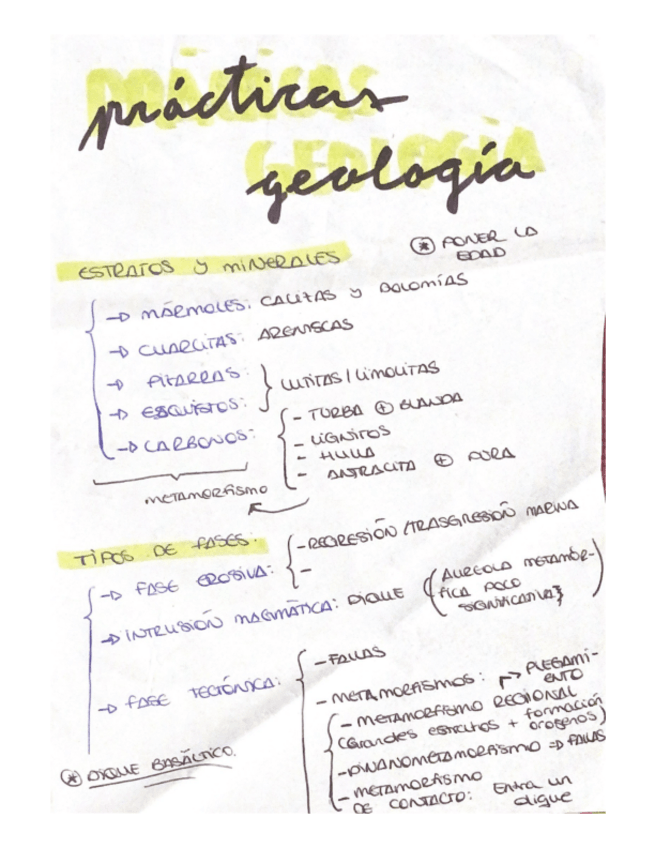 PRÁCTICAS
prácticas
GEOLOGÍA
geología
* PONER LA
EDAD
ESTRATOS y MINERALES
→ MÁRMOLES: CALIZAS y DOLOMÍAS
→ CUARCITAS: ARENISCAS
→ PIZARRAS:
→ ESQUISTOS:
LUTITAS / LIMOLITAS
→ CARBONOS:
- TURBA ⊕ BLANDA
- LIGNITOS
- HULLA
- ANTRACITA ⊕ PURA
METAMORFISMO
TIPOS DE FASES:
→ FASE EROSIVA:
- REGRESIÓN / TRASGRESIÓN MARINA
-
→ INTRUSIÓN MAGMÁTICA: DIQUE (AUREOLA METAMÓR-
FICA POCO
SIGNIFICATIVA)
→ FASE TECTÓNICA:
- FALLAS
- METAMORFISMOS: → PLEGAMI-
ENTO
- METAMORFISMO REGIONAL
(Grandes estratos + formación
orógenos)
- DINANOMETAMORFISMO ⇒ FALLAS
- METAMORFISMO
DE CONTACTO: Entra un
dique
* DIQUE BASÁLTICO.